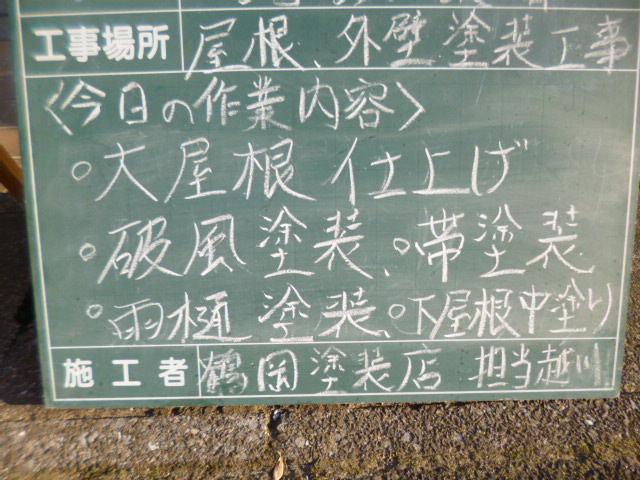 工事場所 屋根、外壁塗装工事
〈今日の作業内容〉
○大屋根 仕上げ
○破風塗装、○帯塗装
○雨樋塗装、○下屋根中塗り
施工者 鶴岡塗装店 担当越川